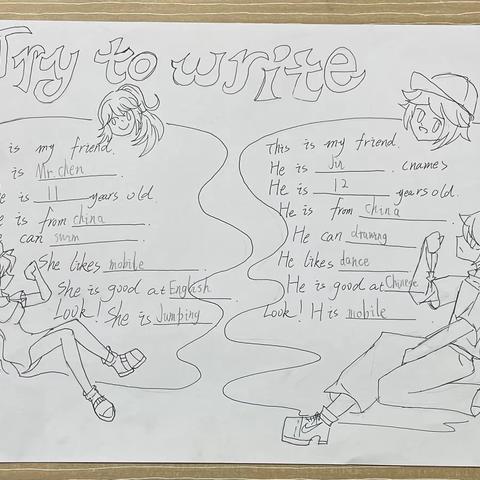 Try to write
is my friend.
is Mr.chen
e is 11 years old.
e is from china
e can swim.
She likes mobile.
She is good at English.
Look! She is Jumping
This is my friend.
He is Jin. (name)
He is 12 years old.
He is from china
He can drawing.
He likes dance
He is good at Chinese
Look! H is mobile.